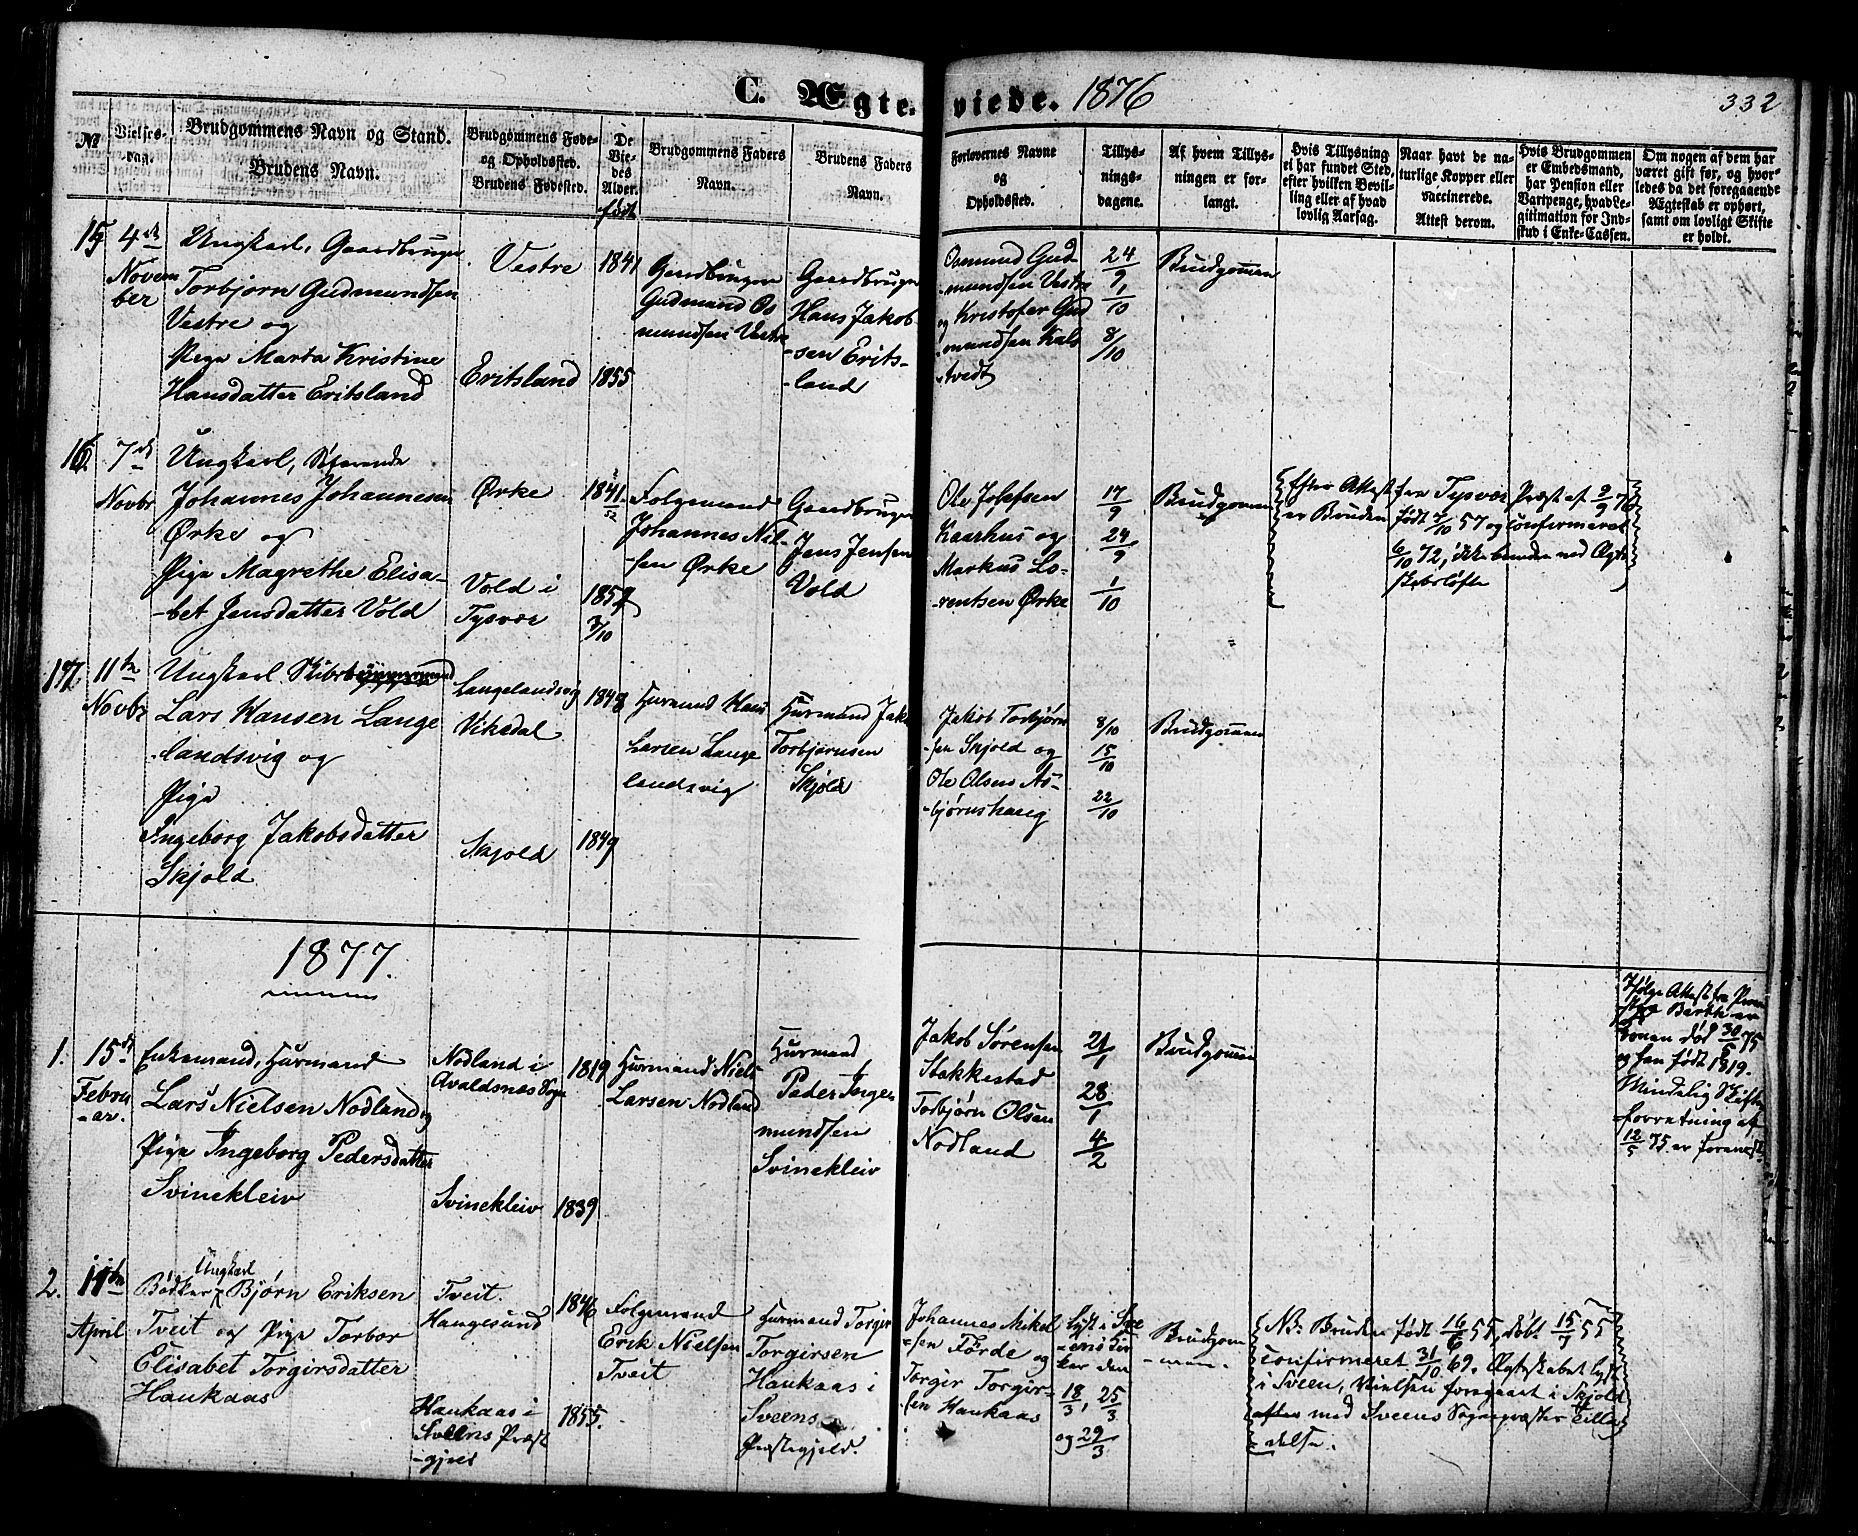 C. Ægteviede. 1876
332
No
Vielses-
dag.
Brudgommens Navn og Stand.
Brudens Navn.
Brudgommens Føde-
og Opholdssted.
Brudens Fødested.
De
Vie-
des
Alder.
født
Brudgommens Faders
Navn.
Brudens Faders
Navn.
Forlovernes Navne
og
Opholdssted.
Tillys-
nings-
dagene.
Af hvem Tillys-
ningen er for-
langt.
Hvis Tillysning
ei har fundet Sted,
efter hvilken Bevil-
ling eller af hvad
lovlig Aarsag.
Naar havt de na-
turlige Kopper eller
vaccinerede.
Attest derom.
Hvis Brudgommen
er Embedsmand,
har Pension eller
Vartpenge, hvad Le-
gitimation for Ind-
skud i Enke-Cassen.
Om nogen af dem har
været gift før, og hvor-
ledes da det foregaaende
Ægteskab er ophørt,
samt om lovligt Skifte
er holdt.
15
4de
Novem
ber
Ungkarl, Gaardbruger
Torbjørn Gudmundsen
Vestre og
Pige Marta Kristine
Hansdatter Eritsland
Vestre
Eritsland
1841
1855
Gaardbruger
Gudmand Os
mundsen Vestre
Gaardbruger
Hans Jakob-
-sen Erits-
-land
Osmund Gud
-mundsen Vestre
og Kristofer Gud
mundsen Kals
-tvedt
24/9
1/10
8/10
Brudgommen
16
7de
Novbr
Ungkarl, Søfarende
Johannes Johannesen
Ørke og
Pige Magrethe Elisa-
-bet Jensdatter Vold
Ørke
Vold i
Tysvær
1841
1857
7/10
Folgemand
Johannes Niel-
-sen Ørke
Gaardbruger
Jens Jensen
Vold
Ole Josefsen
Kaarhus og
Markus Lo-
-rentsen Ørke
17/9
24/9
1/10
Brudgommen
Efter Attest fra Tysvær Præst af 9/9 76
er Bruden født 7/10 57 og confirmeret
6/10 72, ikke bunden ved Ægte
skabsløfte
17
11te
Novbr
Ungkarl
Lars Hansen Lange
-landsvig og
Pige
Ingeborg Jakobsdatter
Skjold
Langelandsvig
Vikedal
Skjold
1848
1849
Huusmand Hans
Larsen Lange
landsvig
Huusmand Jak
Torbjørnsen
Skjold
Jakob Torbjørn
-sen Skjold og
Ole Olsen As-
-bjørnshaug
8/10
15/10
22/10
Brudgommen
1877.
1.
15de
Febru
-ar.
Enkemand, Huusmand
Lars Nielsen Nodland og
Pige Ingeborg Pedersdatter
Svinekleiv
Nodland i
Avaldsnes Sogn
Svinekleiv
1819
1839
Huusmand Niels
Larsen Nodland
Huusmand
Peder Inger
mundsen
Svinekleiv
Jakob Sørensen
Stakkestad
Torbjørn Olsen
Nodland
21/1
28/1
4/2
Brudgommen
Ifølge Attest fra
Konen død 30/5 75
og han født 1819.
Mindelig Skifte
forretning af
12/5 75 er
2.
11te
April
Ungkarl
Bødker Bjørn Eriksen
Tveit og Pige Torbor
Elisabet Torgirsdatter
Haukaas
Tveit.
Haugesund
Haukaas i
Sveens Præst
-gjeld
1846
1855.
Folgemand
Erik Nielsen
Tveit
Huusmand Torgir
Torgirsen
Haukaas i
Sveens
Præstegjeld.
Johannes Mikel
-sen Førde og
Torgir Torgir-
-sen Haukaas
Lyst i Sve
-ens Kir
-ker den
18/3, 25/3
og 29/3
Brudgom
-men.
NB. Bruden født 16/6 55, døbt 15/7 55
confirmeret 31/10 69. Ægteskabet lyst
i Sveen, Vielsen foregaaet i Skjold
efter med Sveens Sognepræstes Tilla
-delse.